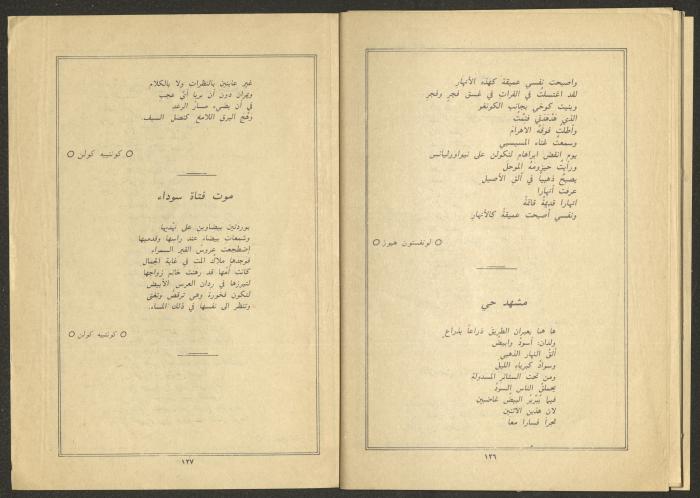 واصبحت نفسي عميقة كهذه الأنهار
لقد اغتسلت في الفرات في غسق فجر وفجر
وبنيت كوخي بجانب الكونغو
الذي هدهدني فنمت
وأطللت فوقه الاهرام
وسمعت غناء المسيسيبي
يوم انقض ابراهام لنكولن على نيواورليانس
ورأيت حيزومه الموحل
يصبح ذهبيا في ألق الأصيل
عرفت أنهارا
انهارا قديمة قاتمة
ونفسي أصبحت عميقة كالأنهار
○ لونفستون هيوز ○
مشهد حي
ها هما يعبران الطريق ذراعا بذراع
ولدان: أسود وابيض
ألق النهار الذهبي
وسواد كبرياء الليل
ومن تحت الستائر المسدولة
يحملق الناس السود
فيما يبربر البيض غاضبين
لان هذين الاثنين
تجرأ فسارا معا
١٢٦
غير عابئين بالنظرات ولا بالكلام
ويمران دون أن يريا أي عجب
في أن يضيء مسار الرعد
وهج البرق اللامع كنصل السيف.
○ كونتييه كولن ○
موت فتاة سوداء
بوردتين بيضاوين على نهديها
وشمعات بيضاء عند راسها وقدميها
إضطجعت عروس القبر السمراء
فوجدها ملاك الموت في غاية الجمال
كانت أمها قد رهنت خاتم زواجها
لتبرزها في ردان العرس الأبيض
لتكون فخورة وهي ترقص وتغني
وتنظر الى نفسها في ذلك المساء.
○ كونتييه كولن ○
١٢٧